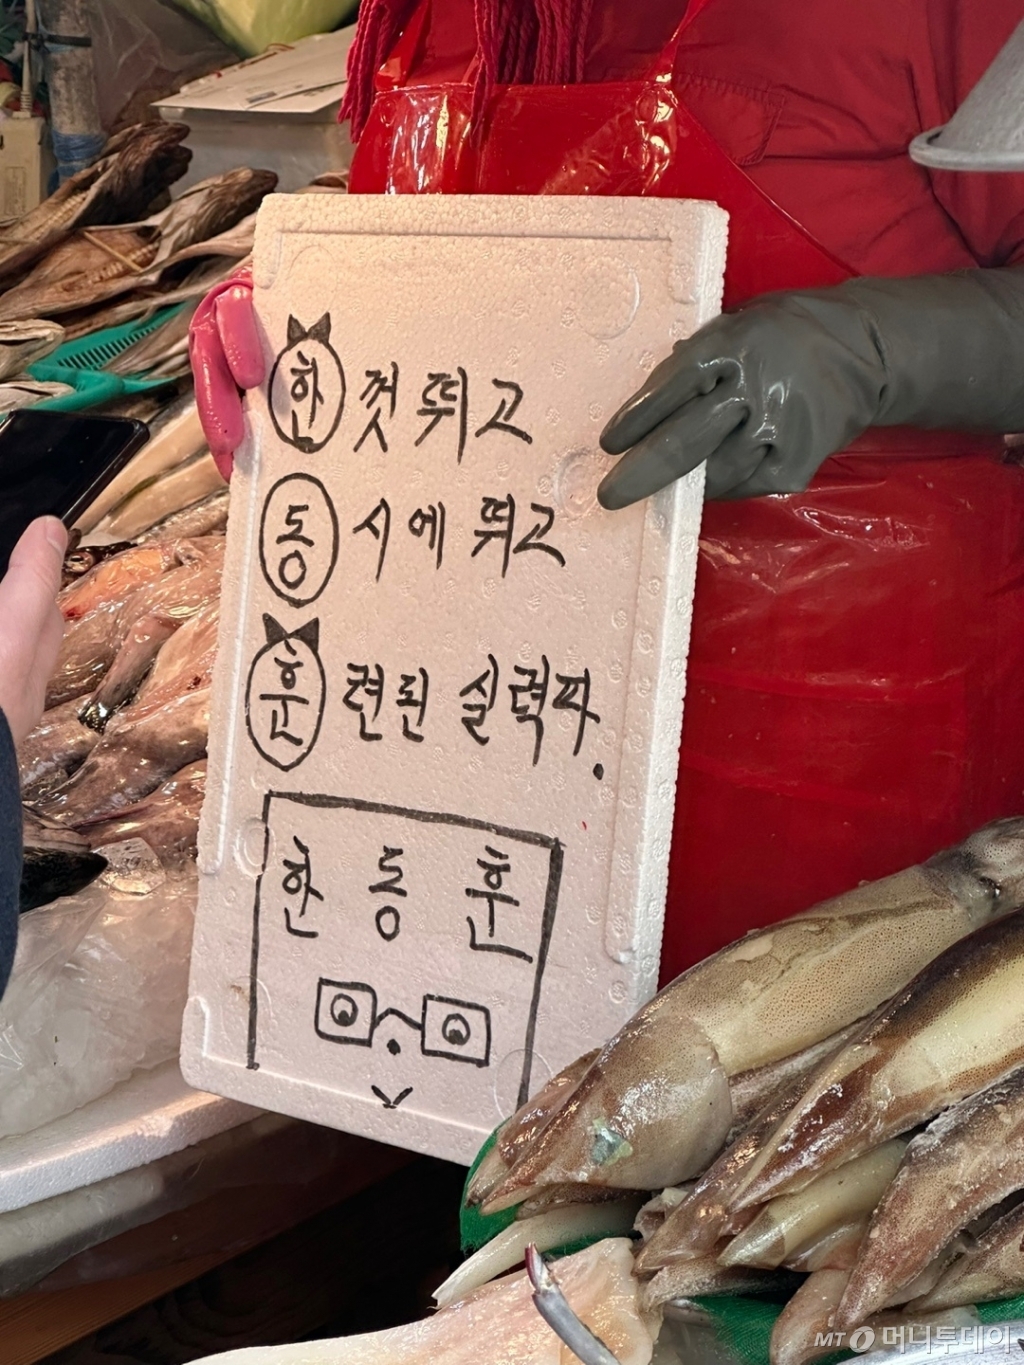 한껏 뛰고
동시에 뛰고
훈련된 실력파.
한 동 훈
MT 머니투데이